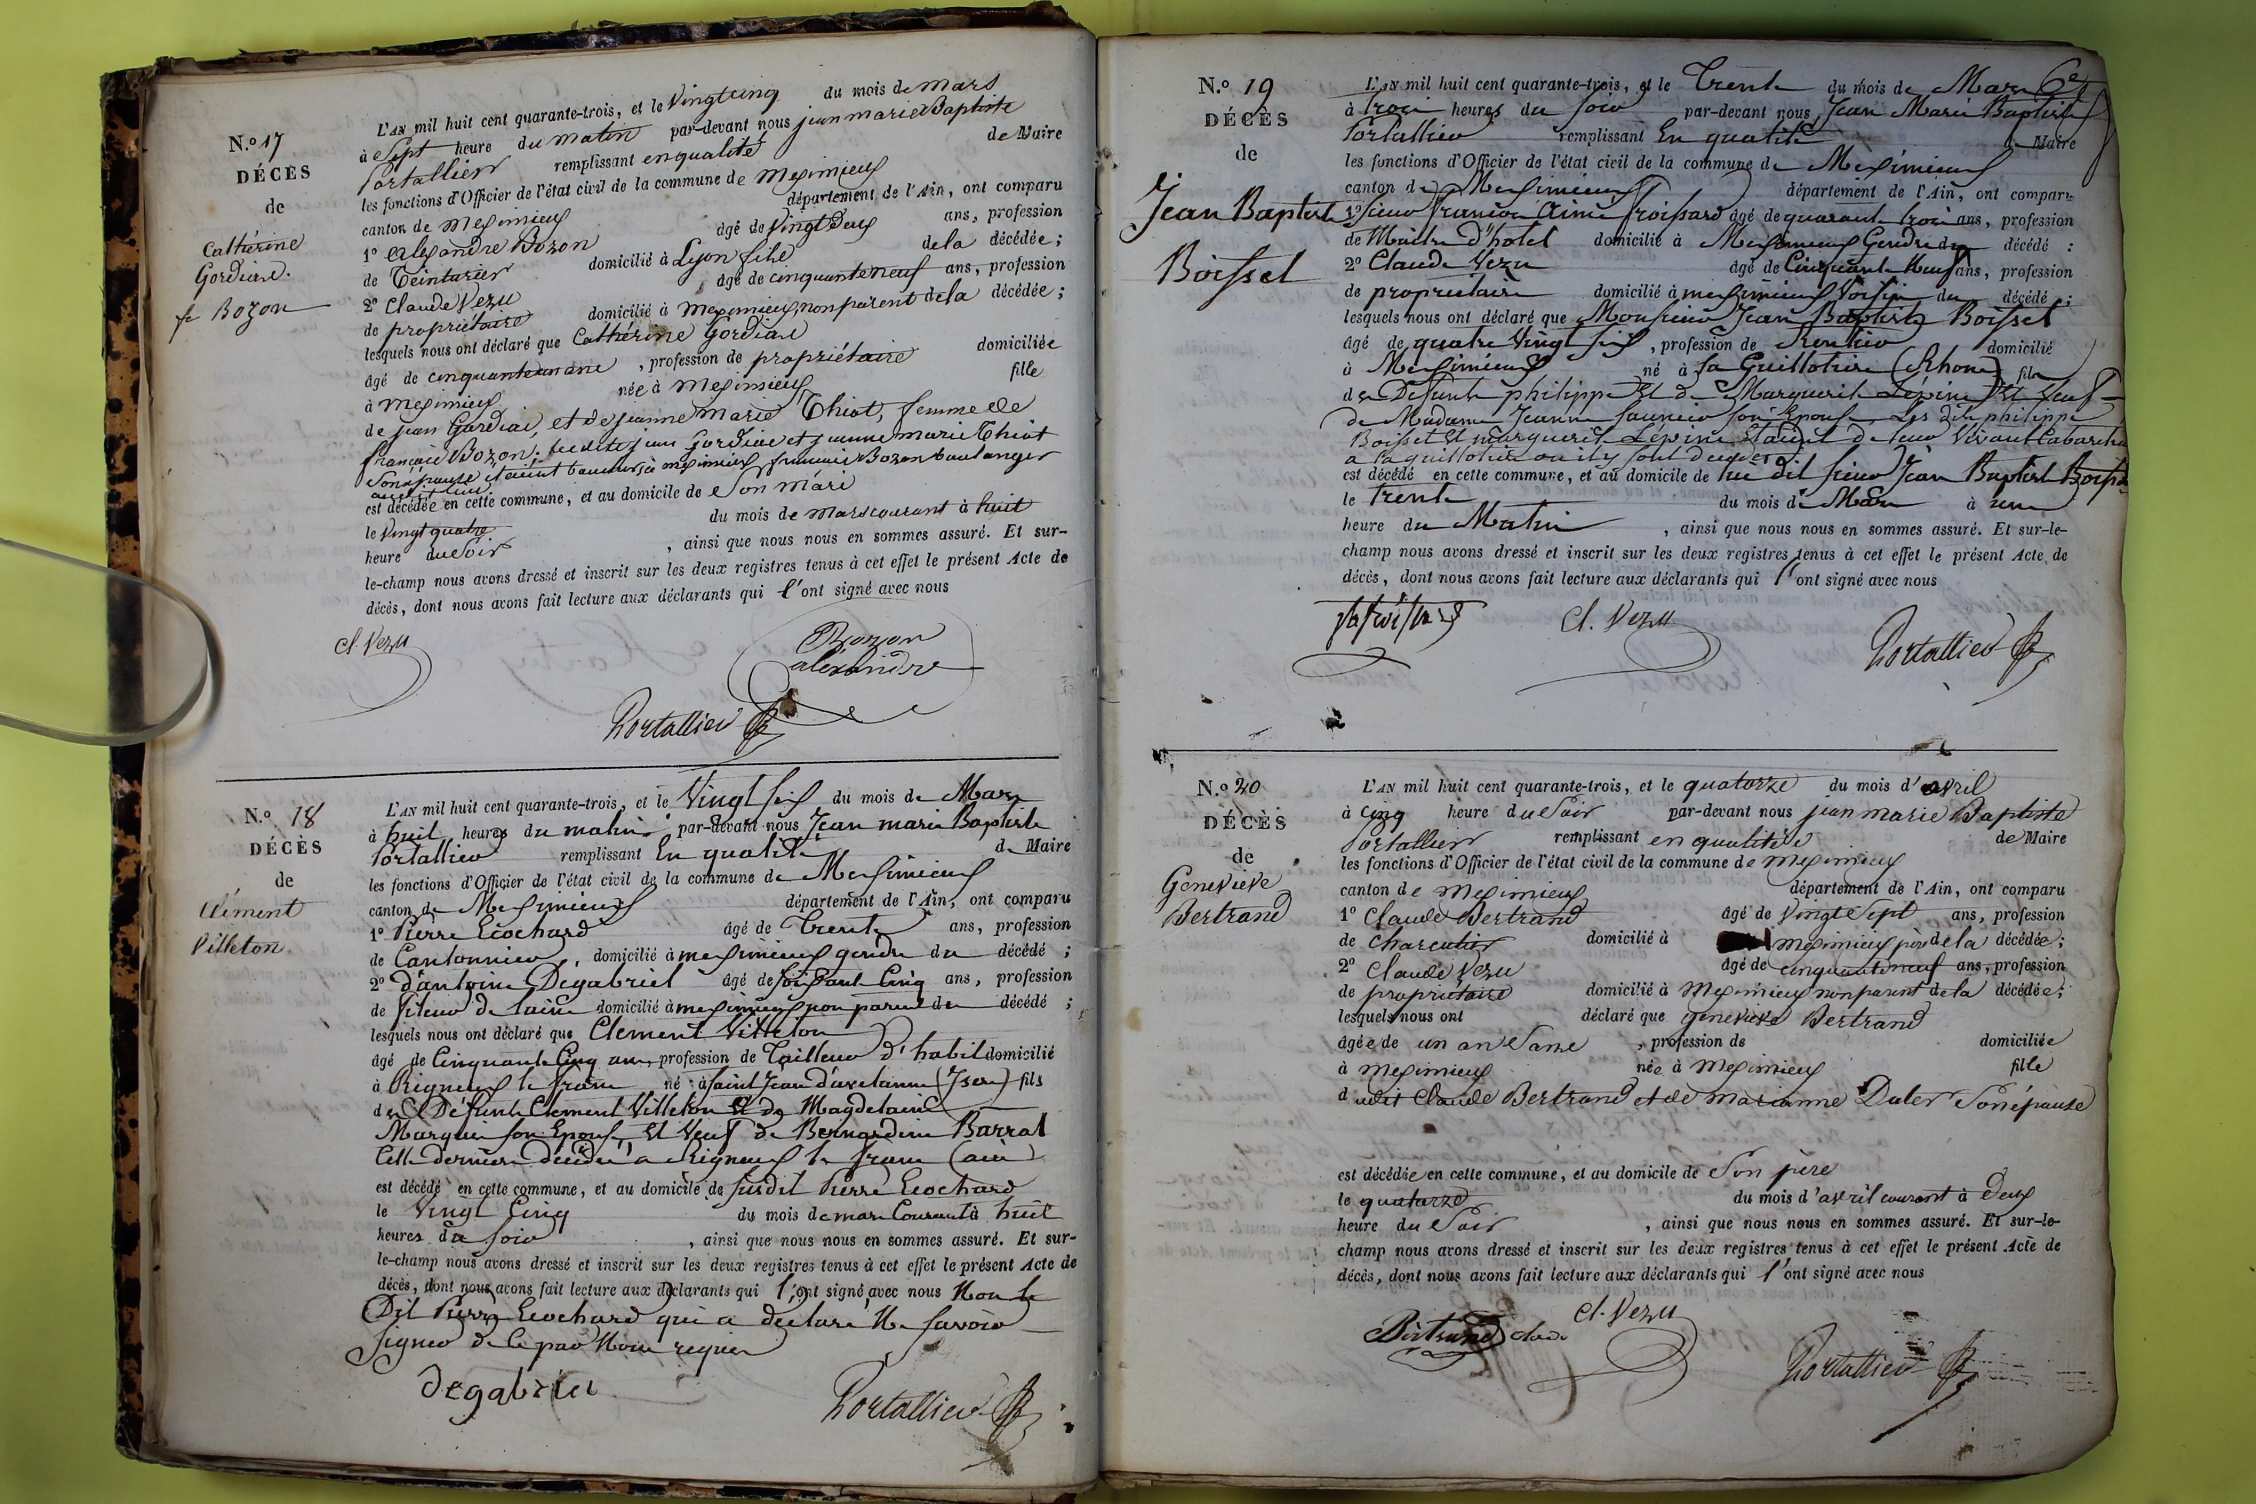 N.º 17
DÉCÈS
de
Cathérine
Gordiat.
fe Bozon
L'AN mil huit cent quarante-trois, et le Vingtcinq du mois de mars
à Sept heure du matin par-devant nous jean marie Baptiste
Portallier remplissant en qualité de Maire
les fonctions d'Officier de l'état civil de la commune de meximieux
canton de meximieux département de l'Ain, ont comparu
1º alexandre Bozon âgé de vingt deux ans, profession
de Teinturier domicilié à Lyon fils de la décédée ;
2º Claude Vezu âgé de cinquante neuf ans, profession
de propriétaire domicilié à meximieux, non parent de la décédée ;
lesquels nous ont déclaré que Cathérine Gordiat
âgé de cinquante , profession de propriétaire domiciliée
à meximieux née à meximieux fille
de jean Gordiat, et de jeanne marie Thiot, femme de
françois Bozon; jean Gordiat et jeanne marie Thiot
Son épouse étaient à meximieux françois Bozon boulanger
est décédée en cette commune, et au domicile de Son mari
le Vingt quatre du mois de mars courant à huit
heure du Soir , ainsi que nous nous en sommes assuré. Et sur-
le-champ nous avons dressé et inscrit sur les deux registres tenus à cet effet le présent Acte de
décès, dont nous avons fait lecture aux déclarants qui l'ont signé avec nous
Cl. Vezu
Bozon
alexandre
Portallier
N.º 18
DÉCÈS
de
Clément
Villeton.
L'AN mil huit cent quarante-trois, et le Vingt six du mois de Mars
à huit heures du matin par-devant nous Jean marie Baptiste
Portallier remplissant En qualité de Maire
les fonctions d'Officier de l'état civil de la commune de Meximieux
canton de Meximieux département de l'Ain, ont comparu
1º Pierre Ecochard âgé de Trente ans, profession
de Cantonnier, domicilié à meximieux gendre du décédé ;
2º d'antoine Dégabriel âgé de Soixante Cinq ans, profession
de fileur de laine domicilié à meximieux non parent du décédé ;
lesquels nous ont déclaré que Clement Villeton
âgé de Cinquante Cinq ans, profession de Tailleur d'habit domicilié
à Rigneux le franc né à Saint Jean d'avelanne (Isere) fils
de Défunt Clement Villeton et de Magdelaine
Marguin son Epouse, Et Veuf de Bernardine Barral
Cette derniere décédée à Rigneux le franc (ain)
est décédé en cette commune, et au domicile de susdit Pierre Ecochard
le Vingt Cinq du mois de mars Courant à huit
heures du soir , ainsi que nous nous en sommes assuré. Et sur-
le-champ nous avons dressé et inscrit sur les deux registres tenus à cet effet le présent Acte de
décès, dont nous avons fait lecture aux déclarants qui l'ont signé avec nous Non le
Dit Pierre Ecochard qui a déclaré Ne Savoir
Signer de ce par Nous requis
degabriel
Portallier
N.º 19
DÉCÈS
de
Jean Baptiste
Boissel
L'AN mil huit cent quarante-trois, et le Trente du mois de Mars 6e
à trois heures du soir par-devant nous Jean Marie Baptiste
Portallier remplissant En qualité de Maire
les fonctions d'Officier de l'état civil de la commune de Meximieux
canton de Meximieux département de l'Ain, ont comparu
1º Sieur françois Aimé froissard âgé de quarante trois ans, profession
de Maitre d'hotel domicilié à Meximieux Gendre du décédé :
2º Claude Vezu âgé de Cinquante Neuf ans, profession
de propriétaire domicilié à meximieux Voisin du décédé ;
lesquels nous ont déclaré que Monsieur Jean Baptiste Boissel
âgé de quatre Vingt six , profession de Rentier domicilié
à Meximieux né à la Guillotiere (Rhone) fils
de Defunt philippe Et de Marguerite Lépine Et Veuf
de Madame Jeanne Saunier son Epouse. Les dits philippe
Boissel et marguerite Lépine Etaient de leur Vivant Cabaretier
a la guillotiere ou ils sont décédés
est décédé en cette commune, et au domicile de lui dit sieur Jean Baptiste Boissel
le trente du mois de Mars à une
heure du Matin , ainsi que nous nous en sommes assuré. Et sur-le-
champ nous avons dressé et inscrit sur les deux registres tenus à cet effet le présent Acte de
décès, dont nous avons fait lecture aux déclarants qui l'ont signé avec nous
Cl. Vezu
Portallier
N.º 20
DÉCÈS
de
Geneviève
Bertrand
L'AN mil huit cent quarante-trois, et le quatorze du mois d'avril
à cinq heure du Soir par-devant nous jean marie Baptiste
Portallier remplissant en qualité de Maire
les fonctions d'Officier de l'état civil de la commune de meximieux
canton de meximieux département de l'Ain, ont comparu
1º Claude Bertrand âgé de vingt Sept ans, profession
de charcutier domicilié à meximieux père de la décédée ;
2º Claude Vezu âgé de cinquante neuf ans, profession
de propriétaire domicilié à meximieux non parent de la décédée ;
lesquels nous ont déclaré que geneviève Bertrand
âgée de un an , profession de domiciliée
à meximieux née à meximieux fille
dudit Claude Bertrand et de marianne Duler Son épouse
est décédée en cette commune, et au domicile de Son père
le quatorze du mois d'avril courant à Deux
heure du Soir , ainsi que nous nous en sommes assuré. Et sur-le-
champ nous avons dressé et inscrit sur les deux registres tenus à cet effet le présent Acte de
décès, dont nous avons fait lecture aux déclarants qui l'ont signé avec nous
Bertrand
Cl. Vezu
Portallier